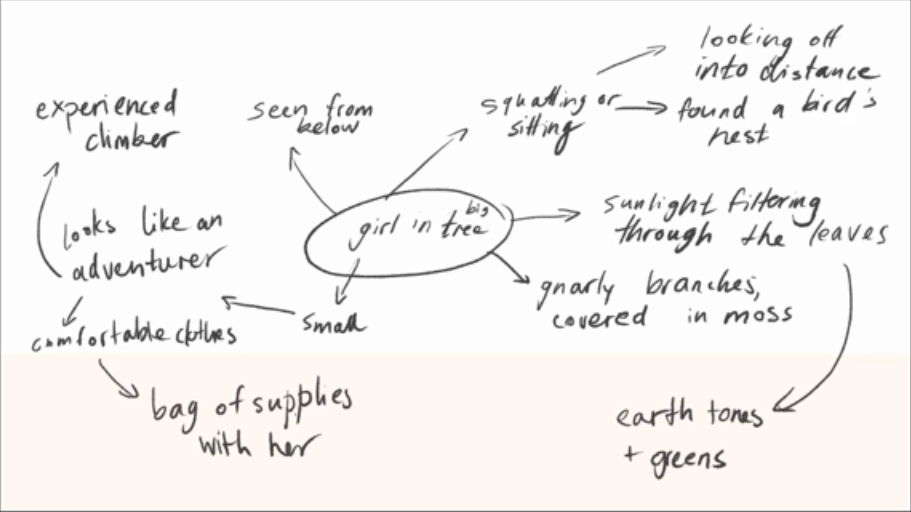 looking off
into distance
experienced
climber
seen from
below
squatting or
sitting
found a bird's
nest
big
girl in tree
sunlight filtering
through the leaves
looks like an
adventurer
gnarly branches,
covered in moss
small
comfortable clothes
bag of supplies
with her
earth tones
+ greens